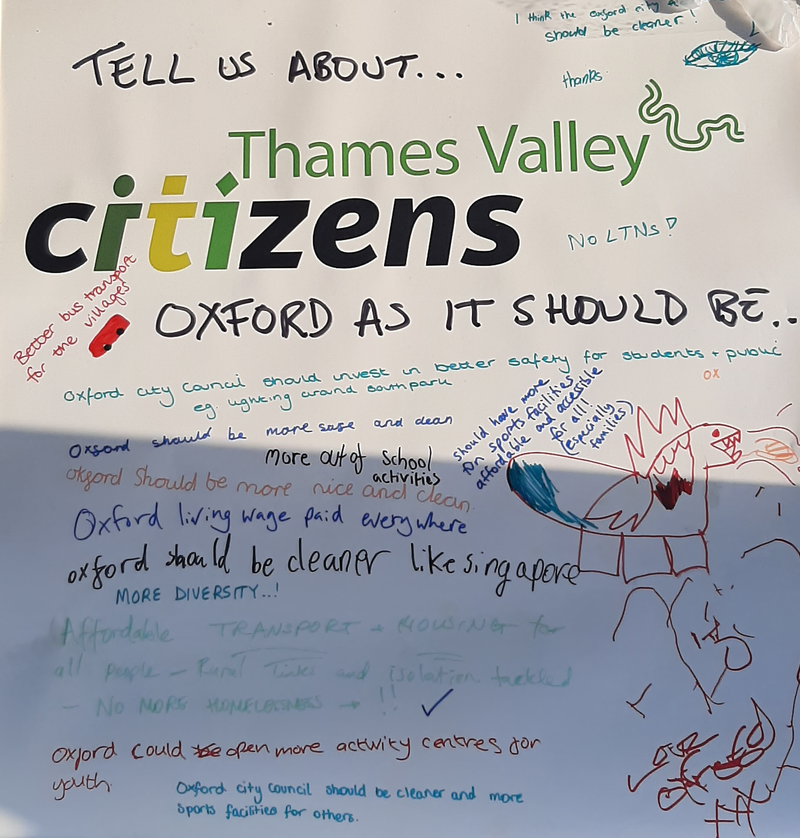 I think the oxford city
should be cleaner!
thanks
TELL US ABOUT...
Thames Valley
citizens
No LTNs!
Better bus transport
for the villages
OXFORD AS IT SHOULD BE..
Oxford city Council should invest in better safety for students + public
eg lighting around southpark
OX
should have more
fun sports facilities
affordable and accessible
for all!
(especially
families)
Oxford should be more safe and clean
more out of school
activities
Oxford Should be more nice and clean.
Oxford living wage paid everywhere
oxford should be cleaner like singapore
MORE DIVERSITY..!
Affordable TRANSPORT + HOUSING for
all people – Rural Links and isolation tackled
– NO MORE HOMELESSNESS → !!
Oxford could open more activity centres for
youth
Oxford city council should be cleaner and more
sports facilities for others.